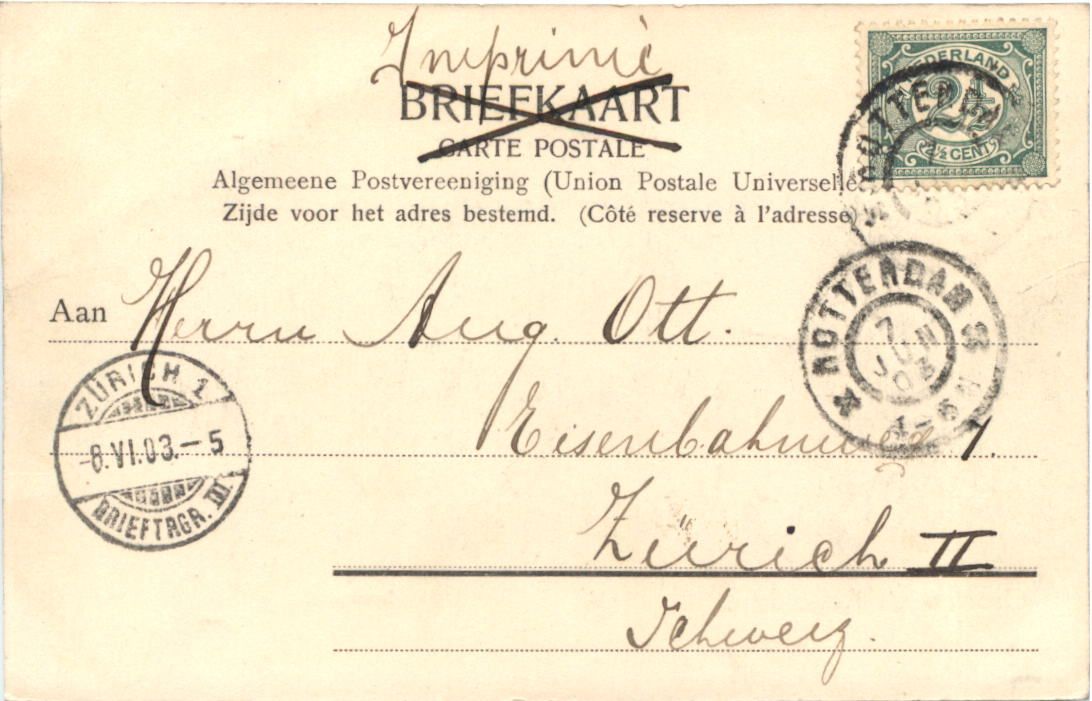 Imprimé
BRIEFKAART
CARTE POSTALE
Algemeene Postvereeniging (Union Postale Universelle
Zijde voor het adres bestemd. (Côté reserve à l'adresse)
NEDERLAND
2½
2½ CENT
ROTTERDAM
ROTTERDAM
7
JUN
03
4-5 N
Aan Herrn Aug. Ott.
Eisenbahnweg 1.
Zürich II
Schweiz.
ZÜRICH 1
-8.VI.03.-5
BRIEFTRGR. III